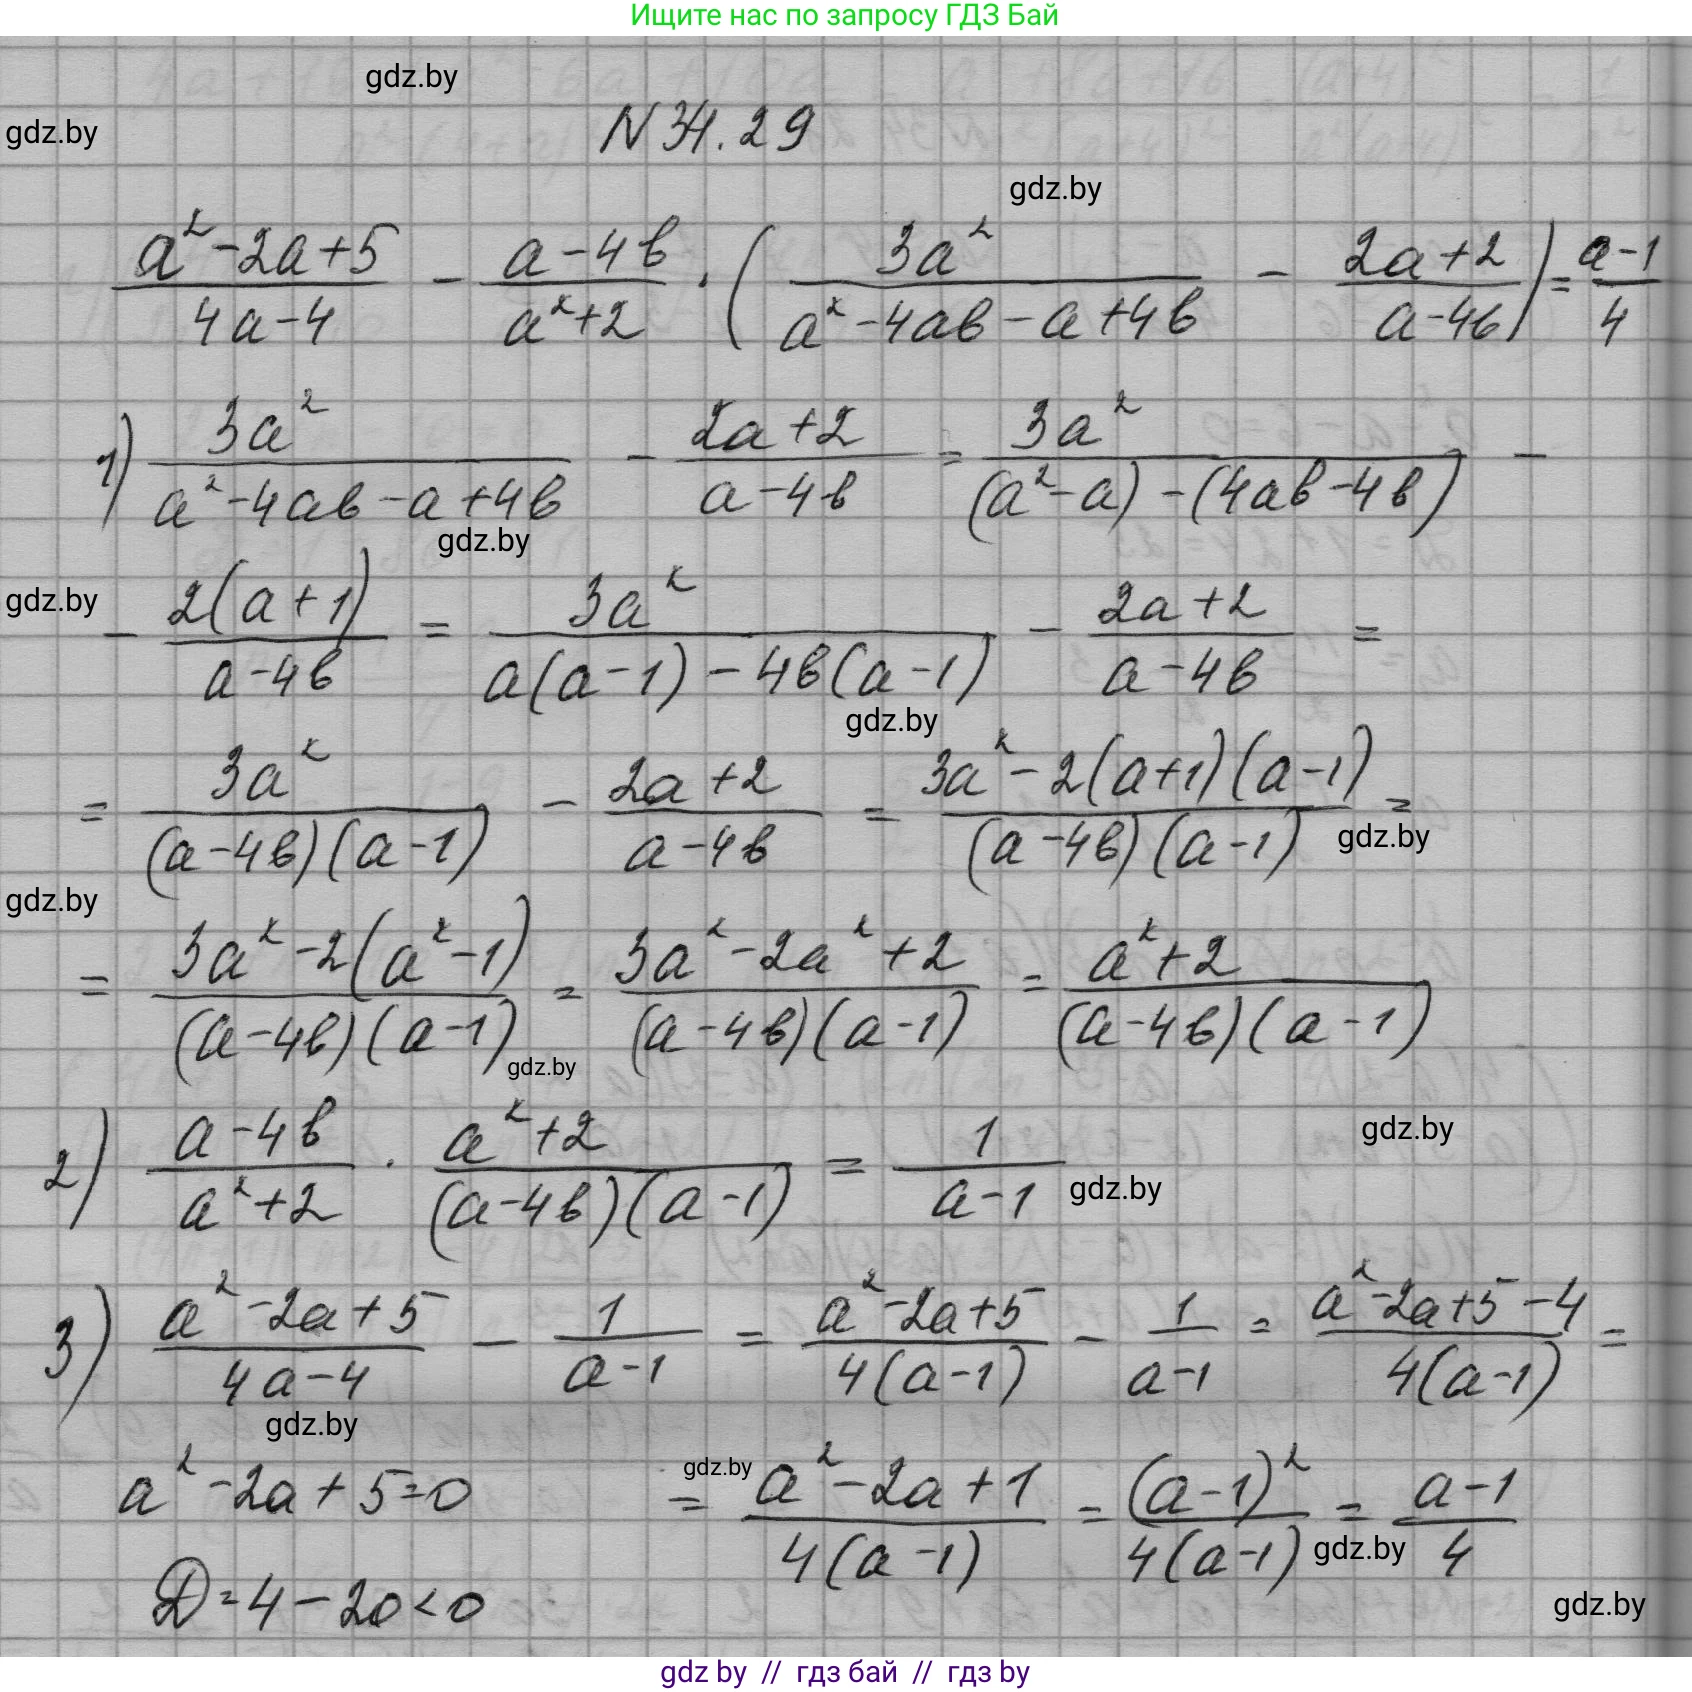 Ищите нас по запросу ГДЗ Бай
gdz.by
gdz.by
N 34.29
gdz.by
(a²-2a+5)/(4a-4) - (a-4b)/(a²+2) · (3a²/(a²-4ab-a+4b) - (2a+2)/(a-4b)) = (a-1)/4
1) 3a²/(a²-4ab-a+4b) - (2a+2)/(a-4b) = 3a²/((a²-a)-(4ab-4b)) -
gdz.by
gdz.by
- 2(a+1)/(a-4b) = 3a²/(a(a-1)-4b(a-1)) - (2a+2)/(a-4b) =
gdz.by
= 3a²/((a-4b)(a-1)) - (2a+2)/(a-4b) = (3a²-2(a+1)(a-1))/((a-4b)(a-1)) =
gdz.by
gdz.by
= (3a²-2(a²-1))/((a-4b)(a-1)) = (3a²-2a²+2)/((a-4b)(a-1)) = (a²+2)/((a-4b)(a-1))
gdz.by
gdz.by
2) (a-4b)/(a²+2) · (a²+2)/((a-4b)(a-1)) = 1/(a-1)
gdz.by
3) (a²-2a+5)/(4a-4) - 1/(a-1) = (a²-2a+5)/(4(a-1)) - 1/(a-1) = (a²-2a+5-4)/(4(a-1)) =
gdz.by
gdz.by
a²-2a+5=0
= (a²-2a+1)/(4(a-1)) = (a-1)²/(4(a-1)) = (a-1)/4
gdz.by
D=4-20<0
gdz.by
gdz by // гдз бай // гдз by